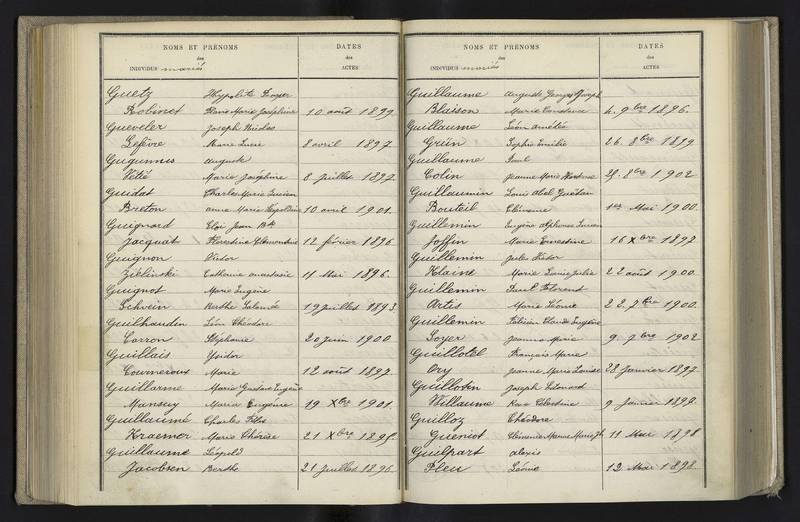 NOMS ET PRÉNOMS DATES
des des
INDIVIDUS mariés ACTES
Guetz Hyppolite
Robinet Marie Joséphine 10 août 1899
Gueveler Joseph Nicolas
Lefèvre Marie Lucie 8 avril 1897
Gugumus auguste
Marie Joséphine 8 juillet 1897
Guidat Charles Marie Lucien
Breton anne Marie 10 avril 1901.
Guignard Eloi Jean Bte
Jacquat Florentine Clémentine 12 février 1896
Guignon Victor
Zielinski Catherine anastasie 11 Mai 1896.
Guignot Marie Eugène
Schvein Berthe 19 juillet 1893
Guilhaudin Léon Théodore
Carron Stéphanie 20 juin 1900
Guillais Ysidor
Courneroux Marie 12 août 1897
Guillarme Marie Gustave Eugène
Mansuy Marie Eugénie 19 Xbre 1901.
Guillaumé Charles Félix
Kraemer Marie Thérèse 21 Xbre 1895
Guillaume Léopold
Jacobsen Berthe 21 juillet 1896
NOMS ET PRÉNOMS DATES
des des
INDIVIDUS mariés ACTES
Guillaume Auguste Georges Joseph
Blaison Marie Constance 4. 9bre 1896.
Guillaume Léon amédée
Grün Sophie Emélie 26. 8bre 1899
Guillaume Paul
Colin Jeanne Marie 8bre 1902
Guillaumin Louis Abel Gaëtan
Bouteil Clémence 1er Mai 1900.
Guillemin Eugène Alphonse Lucien
Joffin Marie Ernestine 16 Xbre 1897
Guillemin Jules Victor
Klaine Marie Louise Julie 22 août 1900.
Guillemin Paul Florent
Artis Marie Léonie 22. 7bre 1900.
Guillemin Fabien Claude Eugène
Soyer Jeanne Marie 9. 7bre 1902
Guillotel François Marie
Ory Jeanne Marie Louise 28 Janvier 1897.
Guillotin Joseph Edouard
Willaume Rose Célestine 9 Janvier 1899.
Guilloz Théodore
Gueniot Clémence 11 Mai 1898
Guilpart alexis
Fleu Léonie 12 Mai 1898.